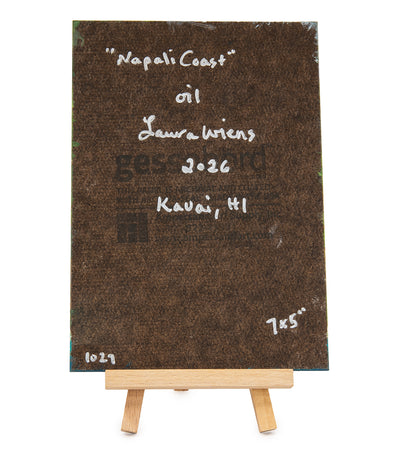 "Napali Coast"
oil
Laura Wiens
gessobord
2026
Kauai, HI
7x5"
1029